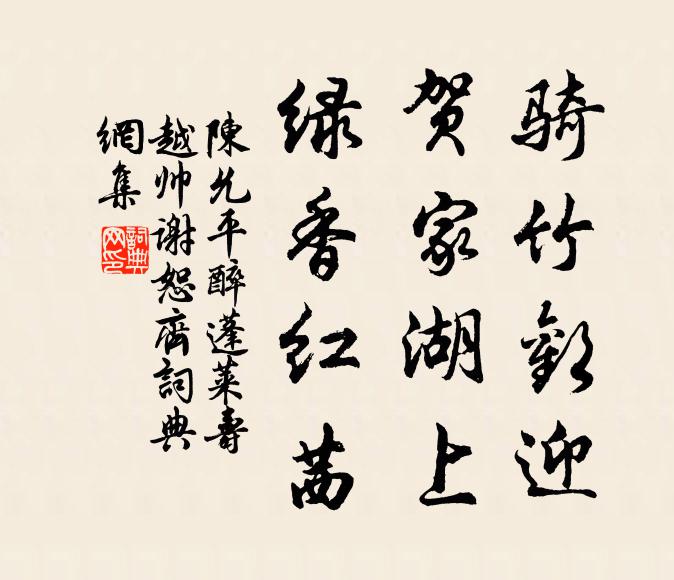 骑竹歡迎
贺家湖上
绿香红茜
陳允平醉蓬萊壽
越帅謝恕齊詞典
網集
詞典
网印